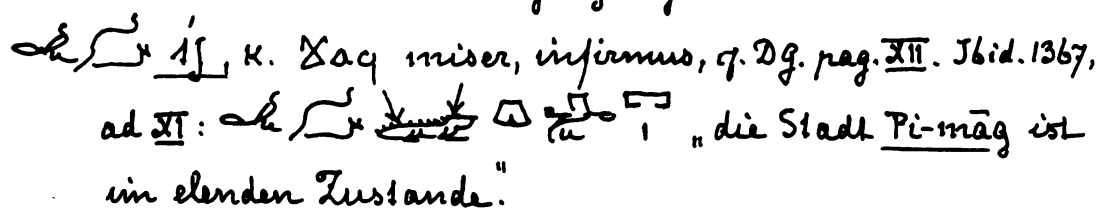 K. ϫⲁϥ miser, infirmus, cf. DG. pag. XII. Ibid. 1367,
ad XI: „die Stadt Pi-māg ist
im elenden Zustande.“